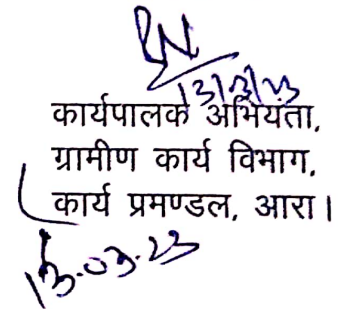 13/3/23
कार्यपालक अभियंता,
ग्रामीण कार्य विभाग,
कार्य प्रमण्डल, आरा।
13.03.23